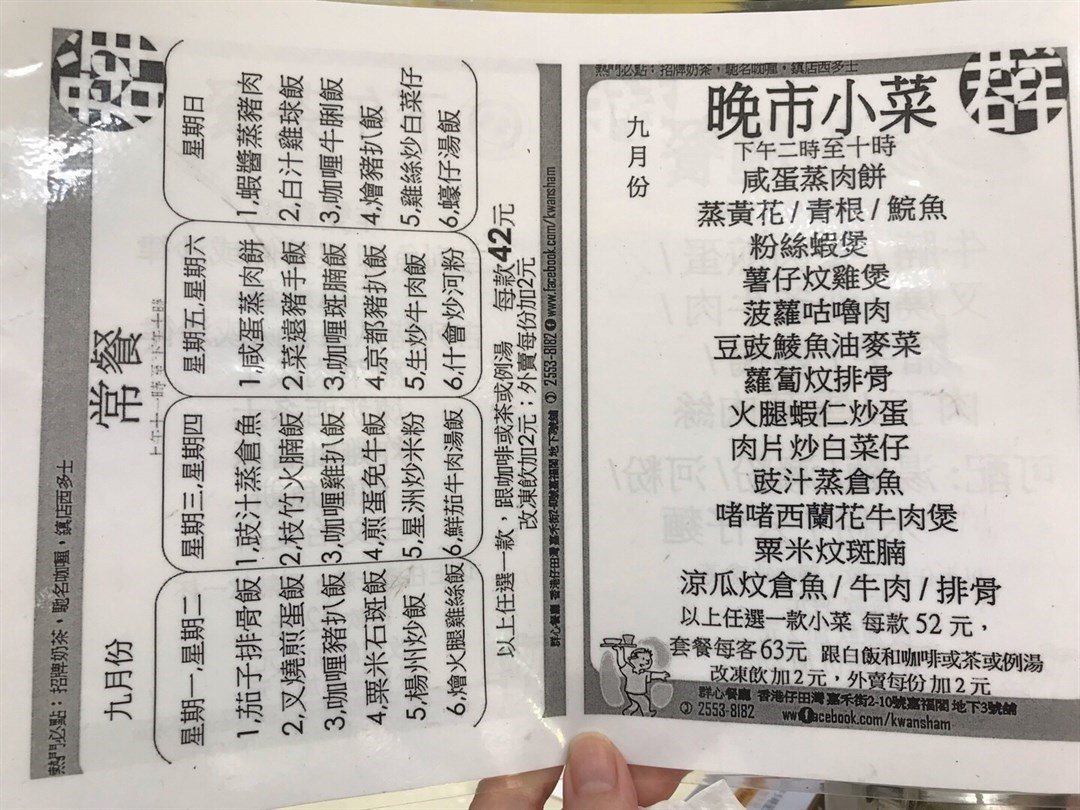 熱門必點：招牌奶茶，馳名咖喱，鎮店西多士
群
九月份
常餐
上午十一時至下午十時
星期一,星期二
1,茄子排骨飯
2,叉燒煎蛋飯
3,咖喱豬扒飯
4,粟米石斑飯
5,楊州炒飯
6,燴火腿雞絲飯
星期三,星期四
1,豉汁蒸倉魚
2,枝竹火腩飯
3,咖喱雞扒飯
4,煎蛋免牛飯
5,星洲炒米粉
6,鮮茄牛肉湯飯
星期五,星期六
1,咸蛋蒸肉餅
2,菜遠豬手飯
3,咖喱斑腩飯
4,京都豬扒飯
5,生炒牛肉飯
6,什會炒河粉
星期日
1,蝦醬蒸豬肉
2,白汁雞球飯
3,咖喱牛脷飯
4,燴豬扒飯
5,雞絲炒白菜仔
6,蠔仔湯飯
以上任選一款，跟咖啡或茶或例湯 每款42元
改凍飲加2元；外賣每份加2元
群心餐廳 香港仔田灣嘉禾街2-10號嘉福閣地下3號舖 2553-8182 www.facebook.com/kwansham
熱門必點：招牌奶茶，馳名咖喱，鎮店西多士
群
九月份
晚市小菜
下午二時至十時
咸蛋蒸肉餅
蒸黃花/青根/鯇魚
粉絲蝦煲
薯仔炆雞煲
菠蘿咕嚕肉
豆豉鯪魚油麥菜
蘿蔔炆排骨
火腿蝦仁炒蛋
肉片炒白菜仔
豉汁蒸倉魚
啫啫西蘭花牛肉煲
粟米炆斑腩
涼瓜炆倉魚/牛肉/排骨
以上任選一款小菜 每款52元，
套餐每客63元 跟白飯和咖啡或茶或例湯
改凍飲加2元，外賣每份加2元
群心餐廳 香港仔田灣嘉禾街2-10號嘉福閣地下3號舖
2553-8182 www.facebook.com/kwansham